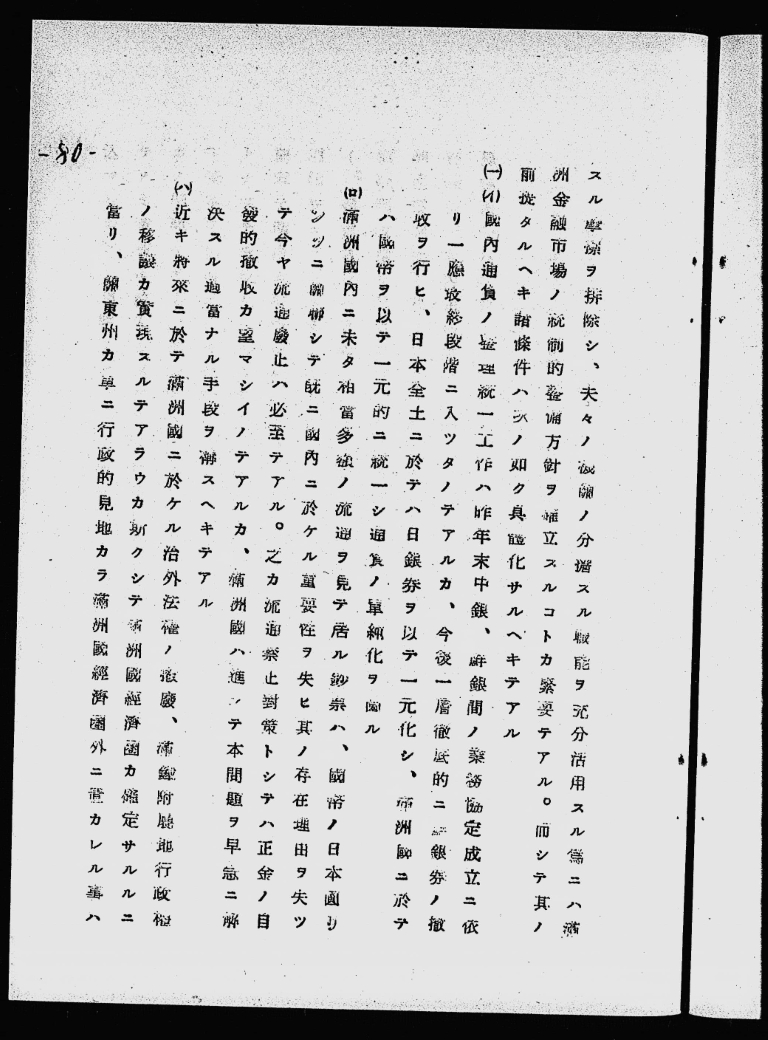 -80-
スル摩擦ヲ排除シ、夫々ノ機關ノ分擔スル職能ヲ充分活用スル爲ニハ滿
洲金融市場ノ統制的整備方針ヲ確立スルコトカ緊要テアル。而シテ其ノ
前提タルヘキ諸條件ハ次ノ如ク具體化サルヘキテアル
(一)(イ)國內通貨ノ整理統一工作ハ昨年末中銀、鮮銀間ノ業務協定成立ニ依
リ一應最終段階ニ入ツタノテアルカ、今後一層徹底的ニ鮮銀券ノ撤
收ヲ行ヒ、日本全土ニ於テハ日銀券ヲ以テ一元化シ、滿洲國ニ於テ
ハ國幣ヲ以テ一元的ニ統一シ通貨ノ單純化ヲ圖ル
(ロ)滿洲國內ニ未タ相當多額ノ流通ヲ見テ居ル鈔票ハ、國幣ノ日本圓リ
ンクニ關聯シテ旣ニ國內ニ於ケル重要性ヲ失ヒ其ノ存在理由ヲ失ツ
テ今ヤ流通廢止ハ必至テアル。之カ流通禁止對策トシテハ正金ノ自
發的撤收カ望マシイノテアルカ、滿洲國ハ進ンテ本問題ヲ早急ニ解
決スル適當ナル手段ヲ講スヘキテアル
(ハ)近キ將來ニ於テ滿洲國ニ於ケル治外法權ノ撤廢、滿鐵附屬地行政權
ノ移讓カ實現スルテアラウカ斯クシテ滿洲國經濟圈カ確定サルルニ
當リ、關東州カ單ニ行政的見地カラ滿洲國經濟圈外ニ置カレル事ハ